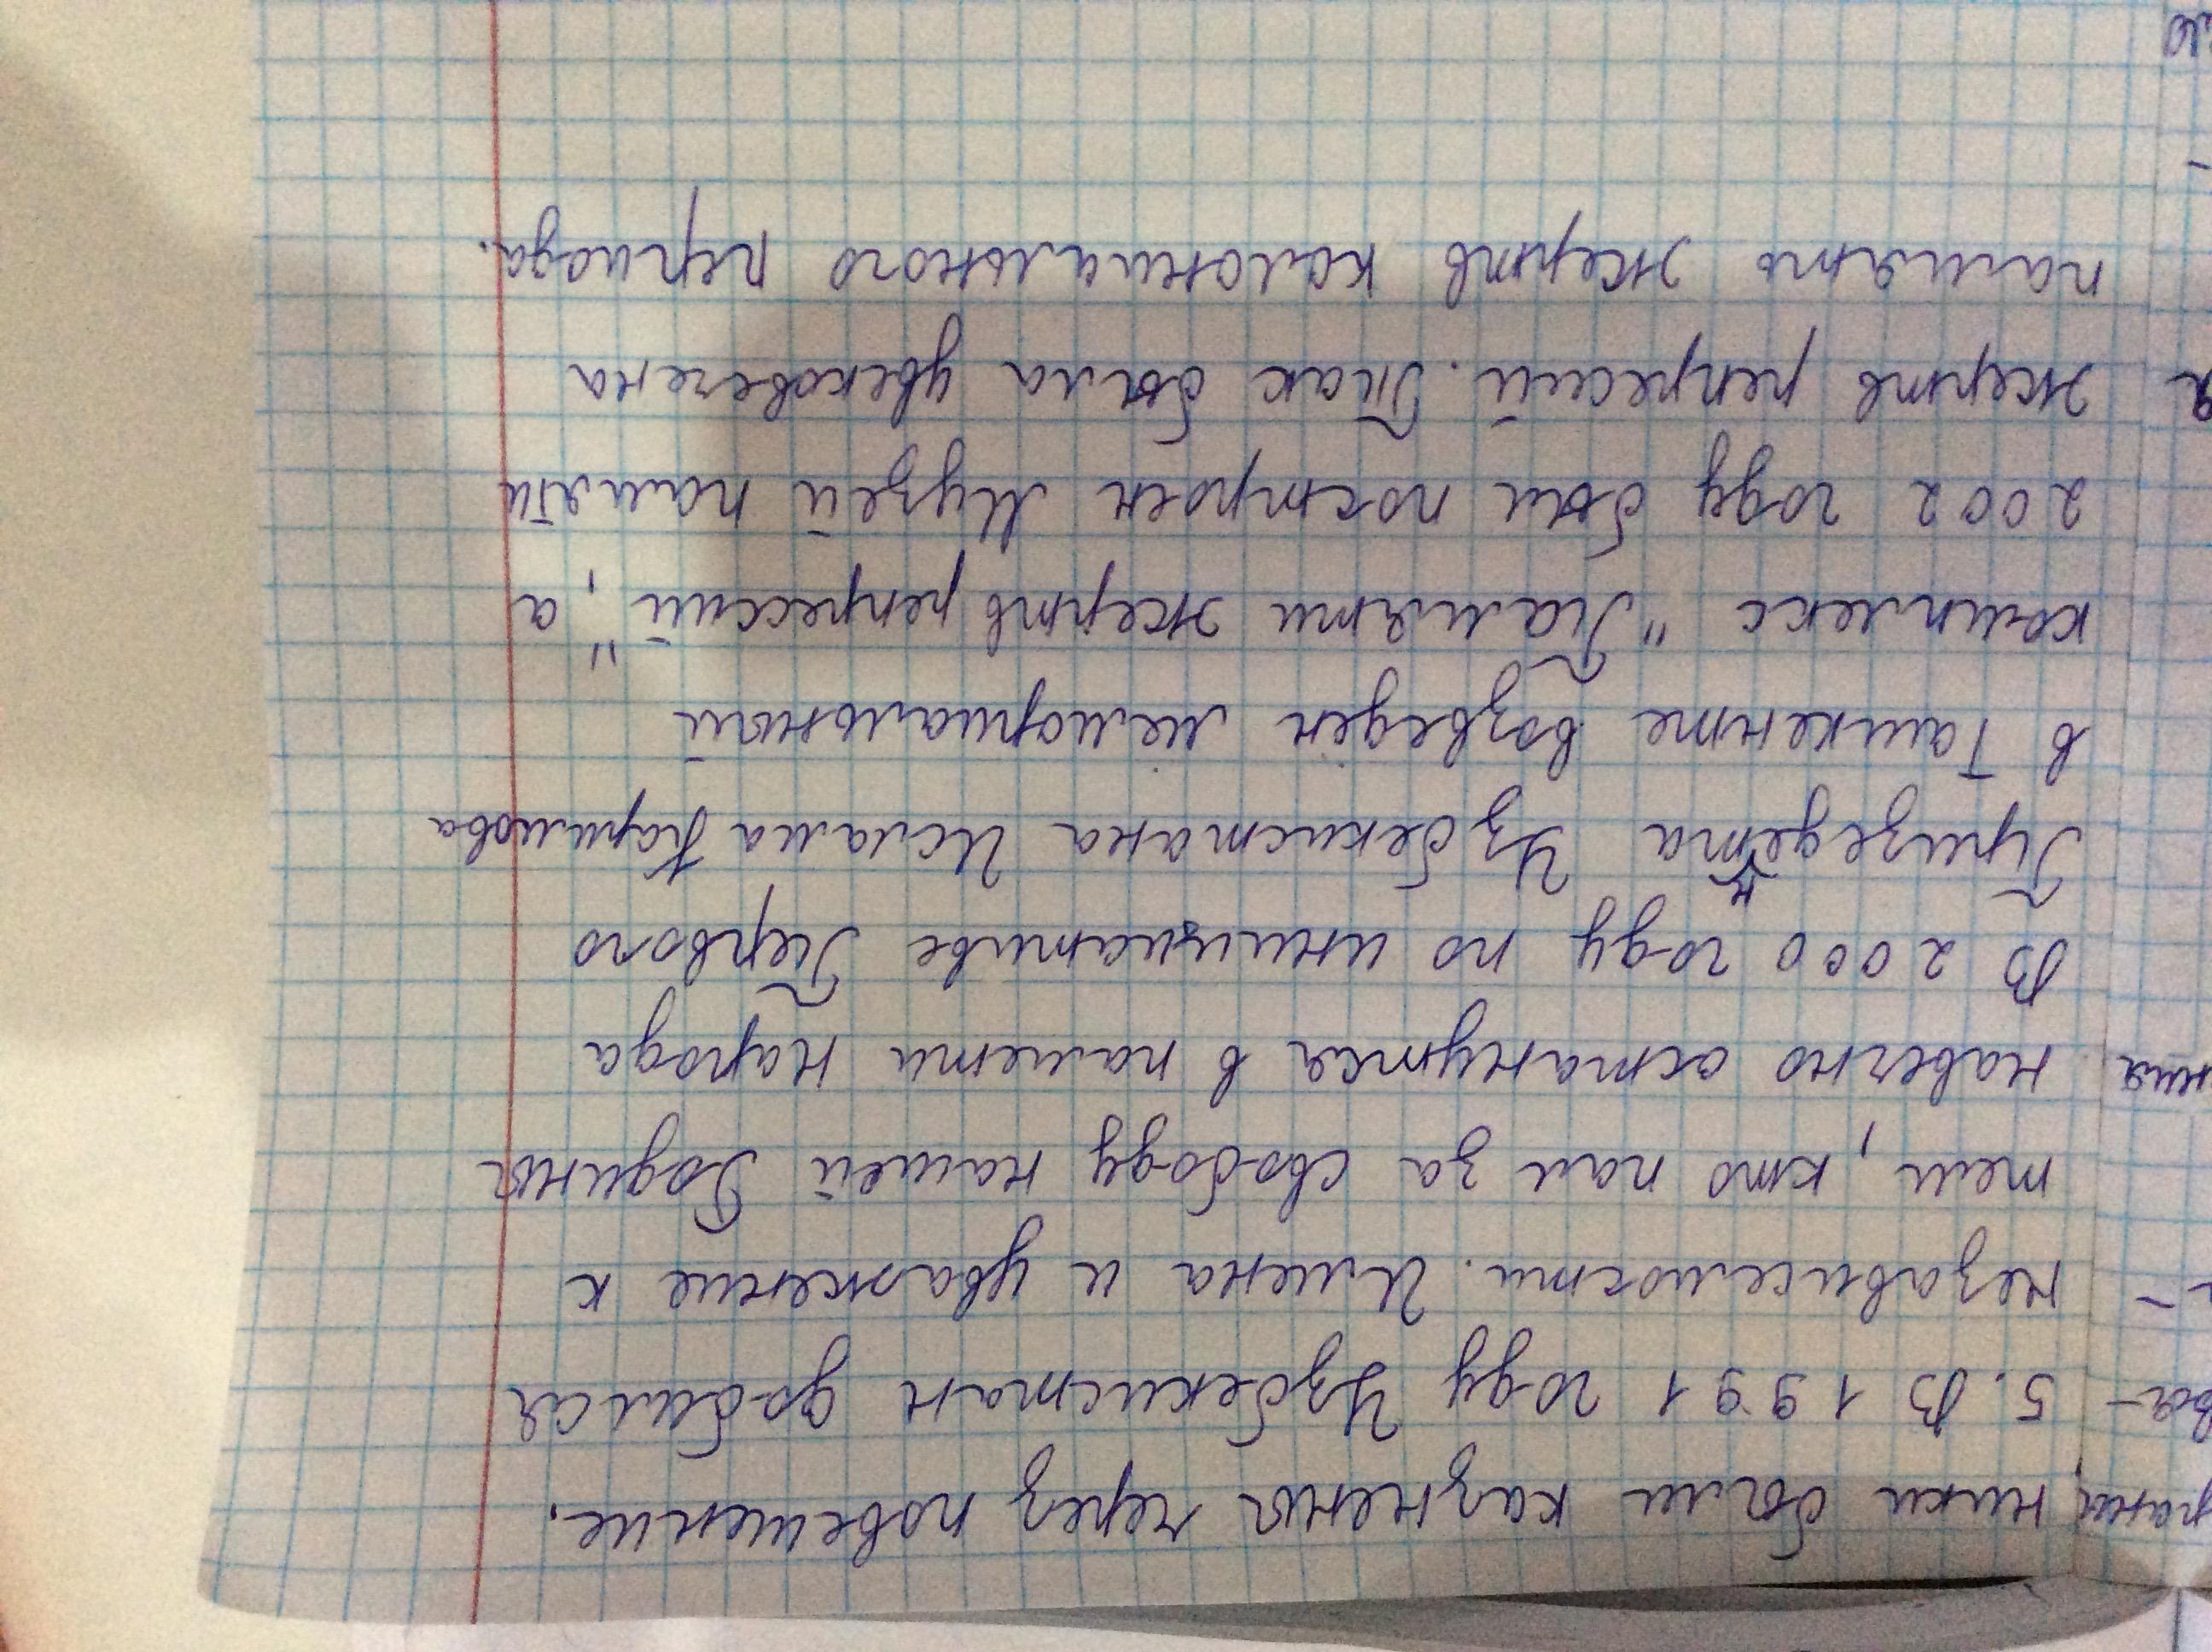 ники были казнены через повешение.
5. В 1991 году Узбекистан добился
независемости. Имена и уважение к
тем, кто пал за свободу нашей Родины
навечно останутся в памети народа
В 2000 году по инициативе Первого
Призедента Узбекистана Ислама Каримова
в Ташкенте возведен мемориальный
комплекс "Памяти жертв репрессий", а
2002 году был построен Музей памяти
жертв репресий. Так была увековечена
память жертв колониального периода.